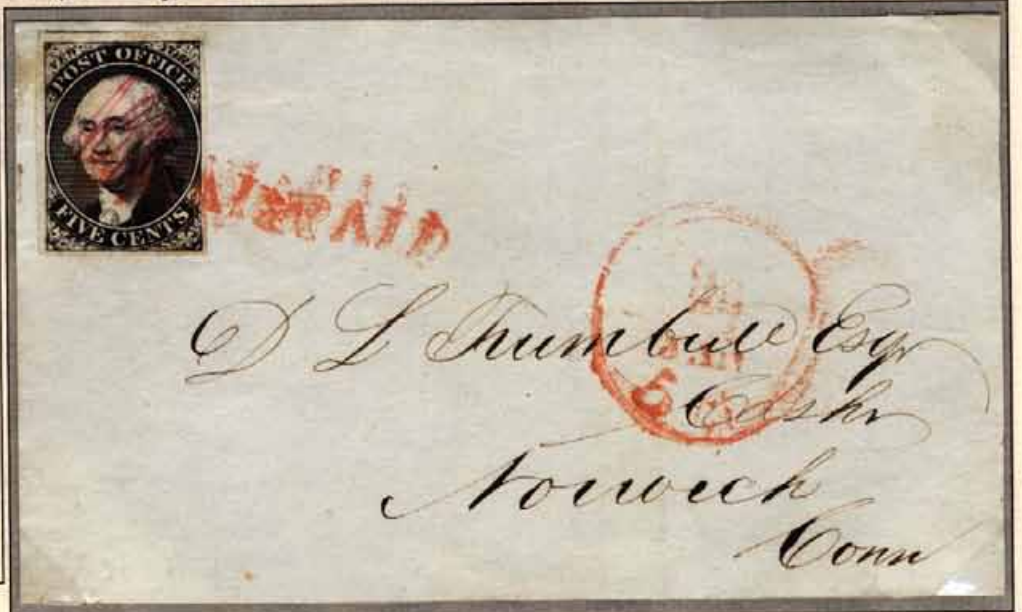 POST OFFICE
FIVE CENTS
PAID
D L Trumbull Esqr
Cashr
Norwich
Conn
5